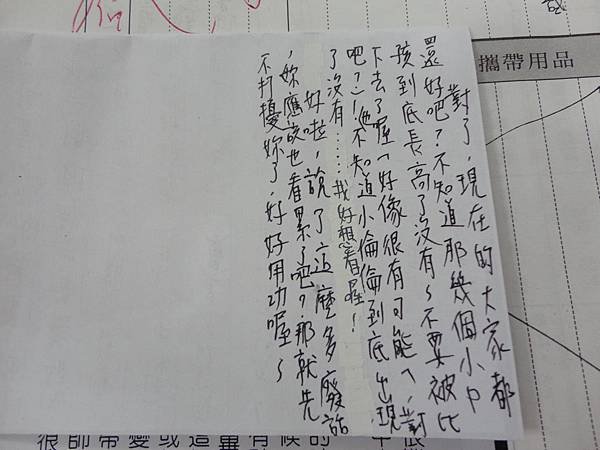 對了,現在的大家都
還好吧?不知道那幾個小P
孩到底長高了沒有~不要被比
下去了喔(好像很有可能ㄟ,對
吧?)!也不知道小倫倫到底出現
了沒有……我好想看喔!
好啦,說了這麼多廢話
,妳應該也看累了吧?那就先
不打擾妳了,好好用功喔~
攜帶用品